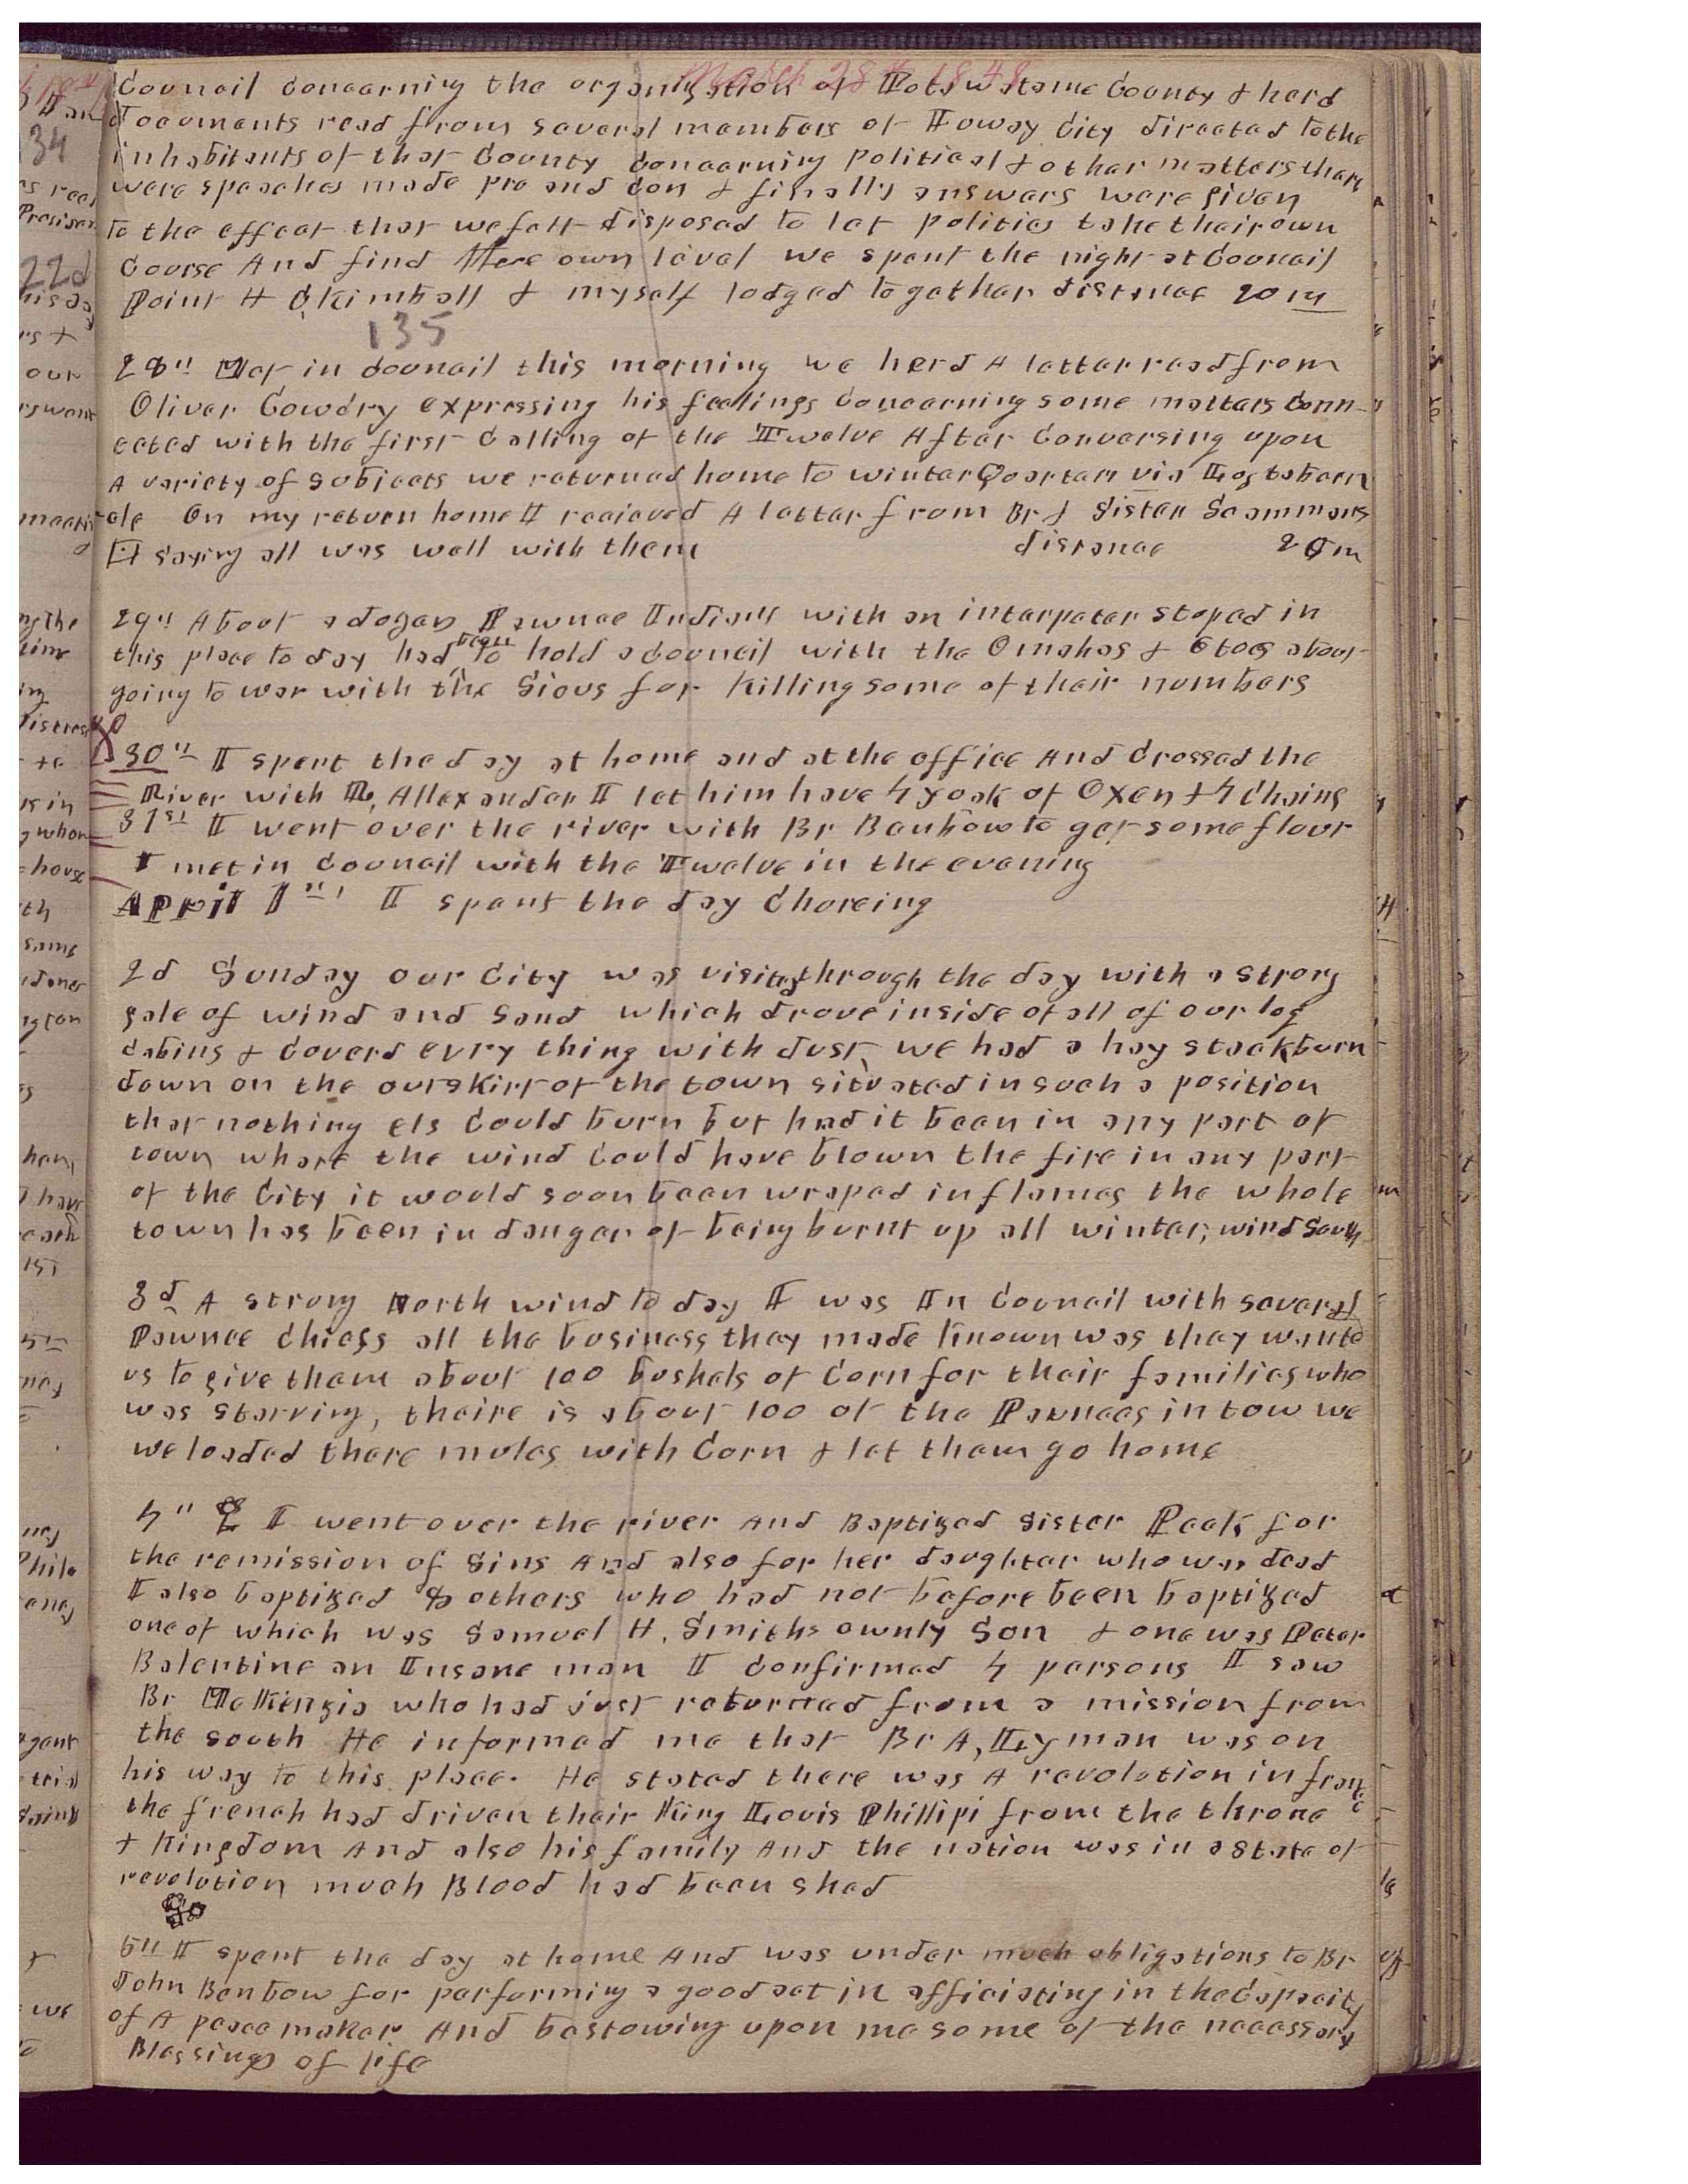 March 28th 1848
Council concerning the organization of Potawatamie County & herd
documents read from several members of Ioway City directed to the
inhabitants of that County concerning political & other matters thare
were speaches made pro and con & finally answars were given
to the effect that we felt disposed to let politics take their own
Course And find there own level we spent the night at Council
Point H C Kimball & myself lodged together distance 20 m
135
28th Met in council this morning we herd A letter read from
Oliver Cowdry expressing his feelings concerning some matters conn-
ected with the first calling of the Twelve After conversing upon
A variety of subjects we returned home to winter Quarters via Log tabern
acle On my return home I recieved A letter from Br & Sister Scammans
saying all was well with them distance 20 m
29th About a dozen Pawnee Indians with an interpeter stoped in
this place to day had been to hold a council with the Omahas & Otoes about
going to war with the Sious for killing some of their numbers
30th I spent the day at home and at the office And crossed the
River with Mr Allexander I let him have 4 yoak of Oxen & 4 chains
31st I went over the river with Br Benbow to get some flour
I met in council with the Twelve in the evening
April 1st I spent the day choreing
2d Sunday our City was visited through the day with a strong
gale of wind and sand which drove inside of all of our log
cabins & coverd evry thing with dust we had a hay stack burn
down on the outskirt of the town situated in such a position
that nothing els could burn but had it been in any part of
town whare the wind could have blown the fire in any part
of the City it would soon been wraped in flames the whole
town has been in danger of being burnt up all winter, wind South
3d A strong North wind to day I was In Council with several
Pawnee chiefs all the business they made known was they wanted
us to give them about 100 bushels of corn for their families who
was starving, thaire is about 100 of the Pawnees in tow we
we loaded there mules with Corn & let them go home
4th I went over the river And Baptized Sister Peck for
the remission of Sins And also for her daughter who was dead
I also baptized 8 others who had not before been baptized
one of which was Samuel H. Smiths ownly Son & one was Peter
Balentine an Insane man I confirmed 4 persons I saw
Br McKinzie who had just returned from a mission from
the south He informed me that Br A, Lyman was on
his way to this place. He stated there was A revolution in france
the french had driven their King Louis Phillipi from the throne
& Kingdom And also his family And the nation was in a State of
revolution much Blood had been shed
5th I spent the day at home And was under much obligations to Br
John Benbow for performing a good act in officiating in the capacity
of A peace maker And bestowing upon me some of the necessary
Blessings of life